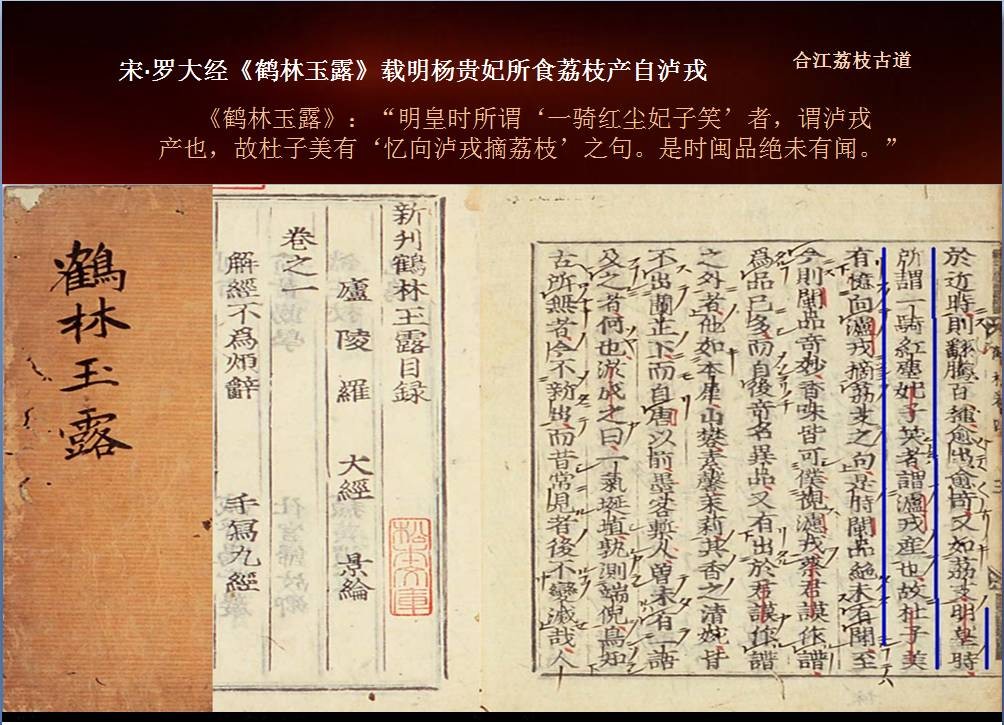 宋·罗大经《鹤林玉露》载明杨贵妃所食荔枝产自泸戎
合江荔枝古道
《鹤林玉露》：“明皇时所谓‘一骑红尘妃子笑’者，谓泸戎
产也，故杜子美有‘忆向泸戎摘荔枝’之句。是时闽品绝未有闻。”
鶴林玉露
新刊鶴林玉露目録
廬陵 羅 大經 景綸
卷之一
解經不爲煩辭 手寫九經
於近時則翻騰百種愈出愈奇又如荔支明皇時
所謂一騎紅塵妃子笑者謂瀘戎產也故杜子美
有憶向瀘戎摘荔支之句是時閩品絕未有聞至
今則閩品奇妙香味皆可僕視瀘戎蔡君謨作譜
爲品已多而自後奇名異品又有出於君謨作譜
之外者他如木犀山礬素馨茉莉其香之清婉皆
不出蘭芷下而自唐以前墨客槧人曾未有一語
及之者何也游成之曰一氣埏埴孰測端倪烏知
古所無者今不新出而昔常見者後不變滅哉人